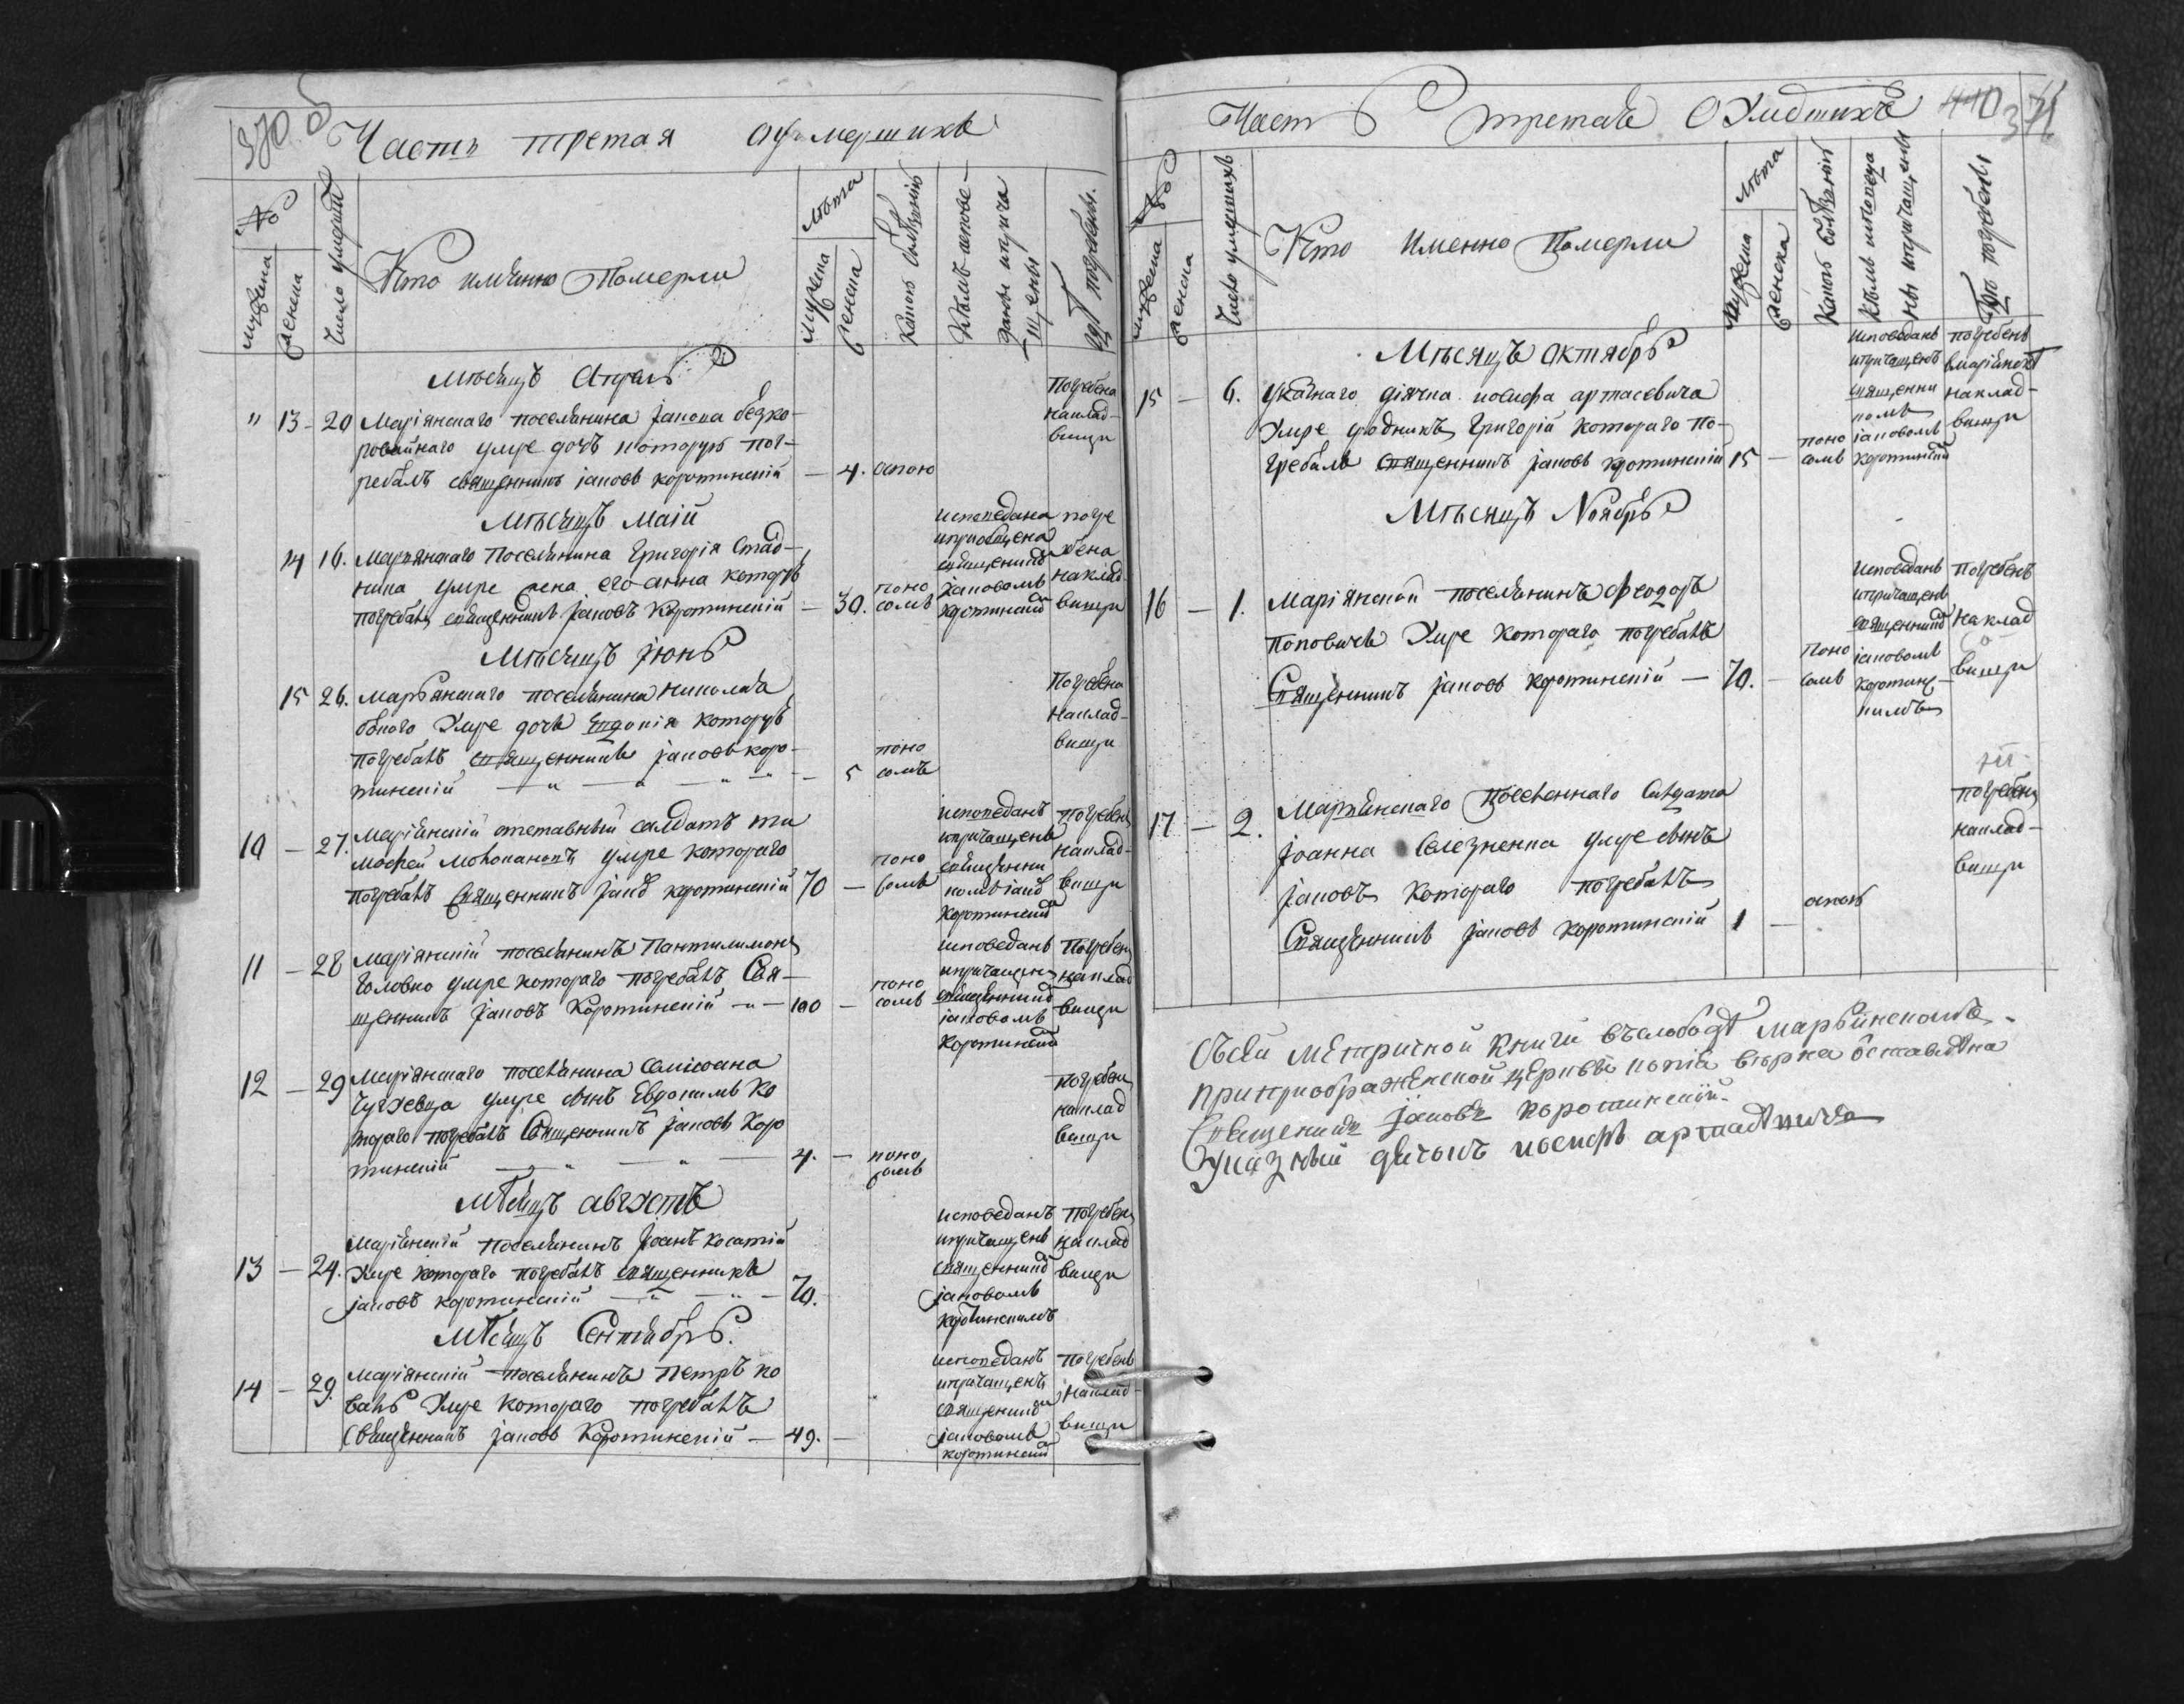 370 б
Часть третая о умершихъ
№
мужеска
женска
Число умершихъ
Кто имянно Померли
Лѣта
мужеска
женска
Какою болѣзнію
Кѣмъ испове-
даны и прича
щены
Гдѣ погребены.
Мѣсяцъ Апрель
" 13 - 20 Маріянского поселянина Iакова безко-
ровайнаго умре дочъ которую пог-
ребалъ священникъ iаковъ коротинскій — 4. оспою
Погребена
наклад-
бищи
Мѣсяцъ Маій
14 16. Марьянскаго Поселянина Григорія Стад-
ника умре жена его анна которую
погребалъ священникъ Iаковъ Коротинскій — 30. поно
сомъ
исповедана
и приобщена
священнико
Iаковомъ
коротинский
погре
бена
наклад-
бищи
Мѣсяцъ Iюнь
15 26. Марьянскаго поселянина николая
бѣлого Умре дочь Евдокія которую
погребалъ священникъ Iаковъ коро-
тинскій — " — " — " 5 поно
сомъ
Погребена
Наклад-
бищи
10 — 27. Маріянскій отставный салдатъ ти
мофей умре котораго
погребалъ Священникъ Iаков коротинскій 70 — поно
сомъ
исповеданъ
и причащенъ
священни
комъ iаков
коротинский
погребенъ
наклад-
бищи
11 — 28 Маріянскій поселянинъ Пантилимонъ
Головко умре котораго погребалъ Свя-
щенникъ Iаковъ Коротинскій — " — 100 — поно
сомъ
исповеданъ
и причащенъ
священнико
iаковомъ
Коротинский
Погребенъ
наклад
бищи
12 — 29 Маріянскаго поселянина
умре сынъ Евдокимъ Ко
тораго погребалъ Священникъ Iаковъ Коро
тинскій — " — " — 4. — поно
сомъ
погребенъ
наклад
бищи
Мѣсяцъ августъ
13 — 24. Маріянскій поселянинъ Iоанъ косатій
Умре котораго погребалъ священникъ
iаковъ коротинскій — " — " — 70.
исповеданъ
и причащенъ
священнико
iаковомъ
коротинскимъ
Погребенъ
наклад
бищи
Мѣсяцъ Сентябрь.
14 — 29. Маріянскій поселянинъ Петръ ко
валь Умре котораго погребалъ
Священникъ Iаковъ Коротинскій — 49. —
исповеданъ
и причащенъ
священнико
iаковомъ
коротинский
погребенъ
Наклад-
бищи
Часть третая О Умершихъ
410 371
№
мужеска
женска
Число умершихъ
Кто Именно Померли
Лѣта
мужеска
женска
Какою болѣзнію
Кѣмъ исповеда
ны и причащены
Гдѣ погребены
Мѣсяцъ Октябрь
15 — 6. Указнаго дiячка иосифа артасевича
Умре сродникъ Григорій котораго По-
гребалъ Священникъ Iаковъ коротинскій 15 — поно
сомъ
исповеданъ
и причащенъ
священни
комъ
iаковомъ
коротинский
погребенъ
вмарійской
наклад-
бищи
Мѣсяцъ Ноябрь
16 — 1. Маріянской поселянинъ Феодоръ
Поповичъ Умре котораго погребалъ
Священникъ Iаковъ коротинскій — 70. — Поно
сомъ
исповеданъ
и причащенъ
священнико
iаковомъ
коротинс-
кимъ
Погребенъ
Наклад
бищи
17 — 2. Марьянскаго Поселеннаго Салдата
Iоанна Селезненка умре сынъ
Iаковъ Котораго погребалъ
Священникъ Iаковъ Коротинскій 1 — оспою
погребенъ
наклад-
бищи
Съсей Метричной Книги въслободѣ Марьянскомъ
припреображенской церквѣ копія вѣрна оставлѣна
Священникъ Iаковъ Коротинскій
Указный дячокъ иосифъ